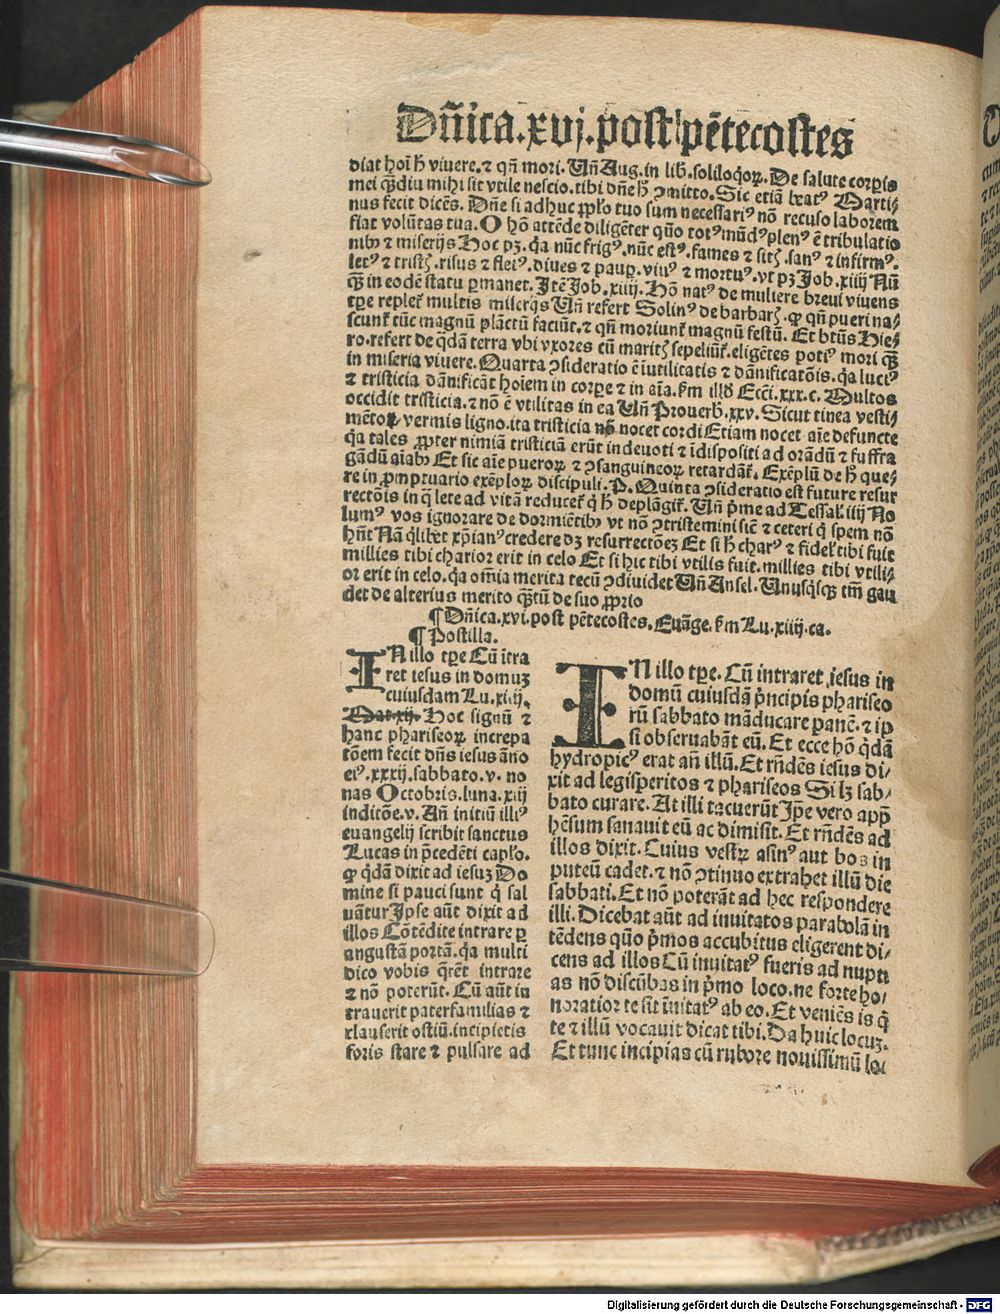 Dñica.xvj.post pētecostes
diat hoī h̄ viuere.⁊ qn̄ mori. Vñ Aug. in lib̄.soliloqoꝝ. De salute corpīs
mei qᷓdiu mihi sit vtile nescio.tibi dñe h̄ ꝯmitto. Sic etiā btꝰ Marti⸗
nus fecit dicēs. Dñe si adhuc ppło tuo sum necessariꝰ nō recuso laborem
fiat volūtas tua. O hō attēde diligēter quō totꝰ mūdꝰ plenꝰ ē tribulatio
nibꝰ ⁊ miserijs Hoc pꝫ. qꝛ nūc frigꝰ. nūc estꝰ. fames ⁊ sitꝭ .sanꝰ ⁊ infirmꝰ.
letꝰ ⁊ tristꝭ .risus ⁊ fletꝰ. diues ⁊ paup̄. viuꝰ ⁊ mortuꝰ. vt pꝫ Job .xiiij Nū
qᷓ in eodē statu ꝑmanet. Itē Job.xiiij. Hō natꝰ de muliere breui viuens
tꝑe repletꝰ multis miserijs Vñ refert Solinꝰ de barbarꝭ. ꝙ qn̄ pueri na⸗
scunt̄ tūc magnū plāctū faciūt.⁊ qn̄ moriunt̄ magnū festū. Et btūs Hie⸗
ro.refert de qᷓdā terra vbi vxores cū maritꝭ sepeliūt̄.eligētes potiꝰ mori qᷓꝫ
in miseria viuere. Quarta ꝯsideratio ē iutilitatis ⁊ dānificatōis. qꝛ luctꝰ
⁊ tristicia dānificāt hoīem in corpe ⁊ in aīa. ẜm illō Ecci.xxx.c. Multos
occidit tristicia.⁊ nō ē vtilitas in ea Vñ Prouerb̄.xxv. Sicut tinea vesti⸗
mētoꝝ vermis ligno.ita tristicia nocet cordi Etiam nocet aīe defuncte
qꝛ tales ꝓpter nimiā tristiciā erūt indeuoti ⁊ īdispositi ad orādū ⁊ suffra
gādū aīabꝰ Et sic aīe pueroꝝ ⁊ ꝯsanguineoꝝ retardāt̄. Exēplū de h̄ que⸗
re in ꝓmptuario exēploꝝ discipuli. P. Quinta ꝯsideratio est future resur
rectōis in q̄ lete ad vitā reducet̄ q̄ h̄ deplāgit̄. Vñ p̄me ad Tessal̄ iiij No
lumꝰ vos ignorare de dormiētibꝰ vt nō ꝯtristemini sic̄ ⁊ ceteri q̄ spem nō
hn̄t Nā q̄libet xp̄ianꝰ credere dꝫ resurrectōeꝫ Et si h̄ charꝰ ⁊ fidel̄ tibi fuit
millies tibi charior erit in celo Et si hic tibi vtilis fuit. millies tibi vtili⸗
or erit in celo. qꝛ om̄ia merita tecū ꝯdiuidet Vñ Ansel. Vnusqꝫ tm̄ gau
det de alterius merito qᷓtū de suo ꝓprio
¶ Dñica.xvi.post pētecostes. Euāge. ẜm Lu.xiiij.ca.
¶ Postilla.
IN illo tꝑe Cū ītra
ret iesus in domuꝫ
cuiusdam Lu.xiiij.
Mat.xij. Hoc signū ⁊
hanc phariseoꝝ increpa
tōem fecit dñs iesus āno
eiꝰ.xxxij.sabbato.v. no
nas Octobris.luna.xiij
inditōe.v. Añ initiū illiꝰ
euangelij scribit sanctus
Lucas in p̄cedēti capło.
ꝙ q̄dā dixit ad iesuꝫ Do
mine si pauci sunt q̄ sal
uātur Jpse aūt dixit ad
illos Cōtēdite intrare ꝑ
angustā portā. qꝛ multi
dico vobis q̄rēt intrare
⁊ nō poterūt. Cū aūt in
trauerit paterfamilias ⁊
clauserit ostiū.incipietis
foris stare ⁊ pulsare ad
IN illo tꝑe. Cū intraret iesus in
domū cuiusdā p̄ncipis phariseo
rū sabbato māducare panē.⁊ ip
si obseruabāt eū. Et ecce hō q̄dā
hydropicꝰ erat añ illū. Et rn̄dēs iesus di⸗
xit ad legisperitos ⁊ phariseos Si lꝫ sab⸗
bato curare. At illi tacuerūt Jpe vero app̄
hēsum sanauit eū ac dimisit. Et rn̄dēs ad
illos dixit. Cuius vestꝝ asinꝰ aut bos in
puteū cadet.⁊ nō ꝯtinuo extrahet illū die
sabbati. Et nō poterāt ad hec respondere
illi. Dicebat aūt ad inuitatos parabolā in
tēdens quō p̄mos accubitus eligerent di⸗
cens ad illos Cū inuitatꝰ fueris ad nupti
as nō discūbas in p̄mo loco.ne forte ho⸗
noratior te sit īuitatꝰ ab eo. Et veniēs is q̄
te ⁊ illū vocauit dicat tibi. Da huic locuꝫ.
Et tunc incipias cū rubore nouissimū lo⸗
Digitalisierung gefördert durch die Deutsche Forschungsgemeinschaft - DFG